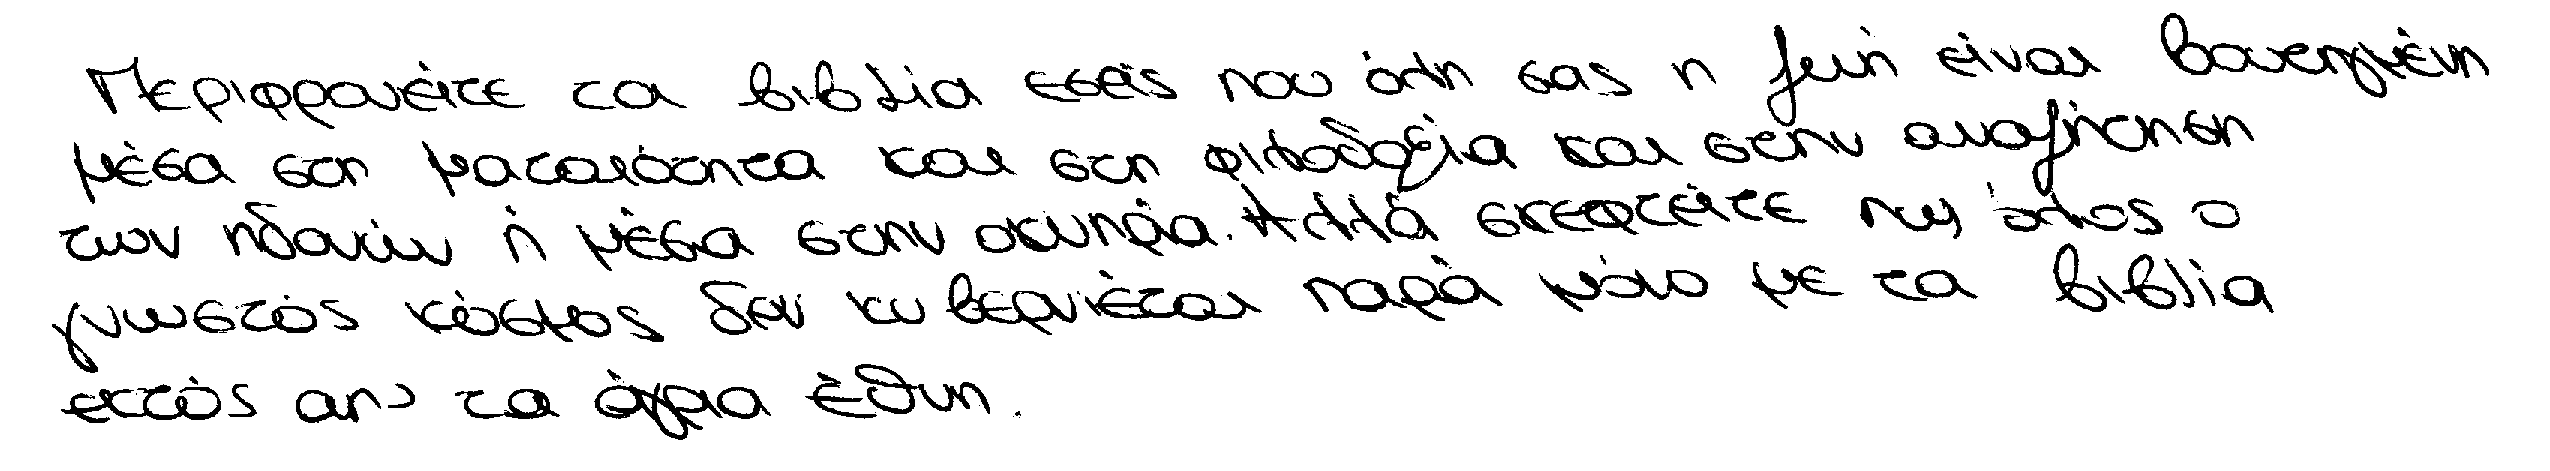 Περιφρονείτε τα βιβλία εσείς που όλη σας η ζωή είναι βουτηγμένη
μέσα στη ματαιότητα και στη φιλοδοξία και στην αναζήτηση
των ηδονών ή μέσα στην οκνηρία. Αλλά σκεφτείτε πως όλος ο
γνωστός κόσμος δεν κυβερνιέται παρά μόνο με τα βιβλία
εκτός απ' τα άγρια έθνη.